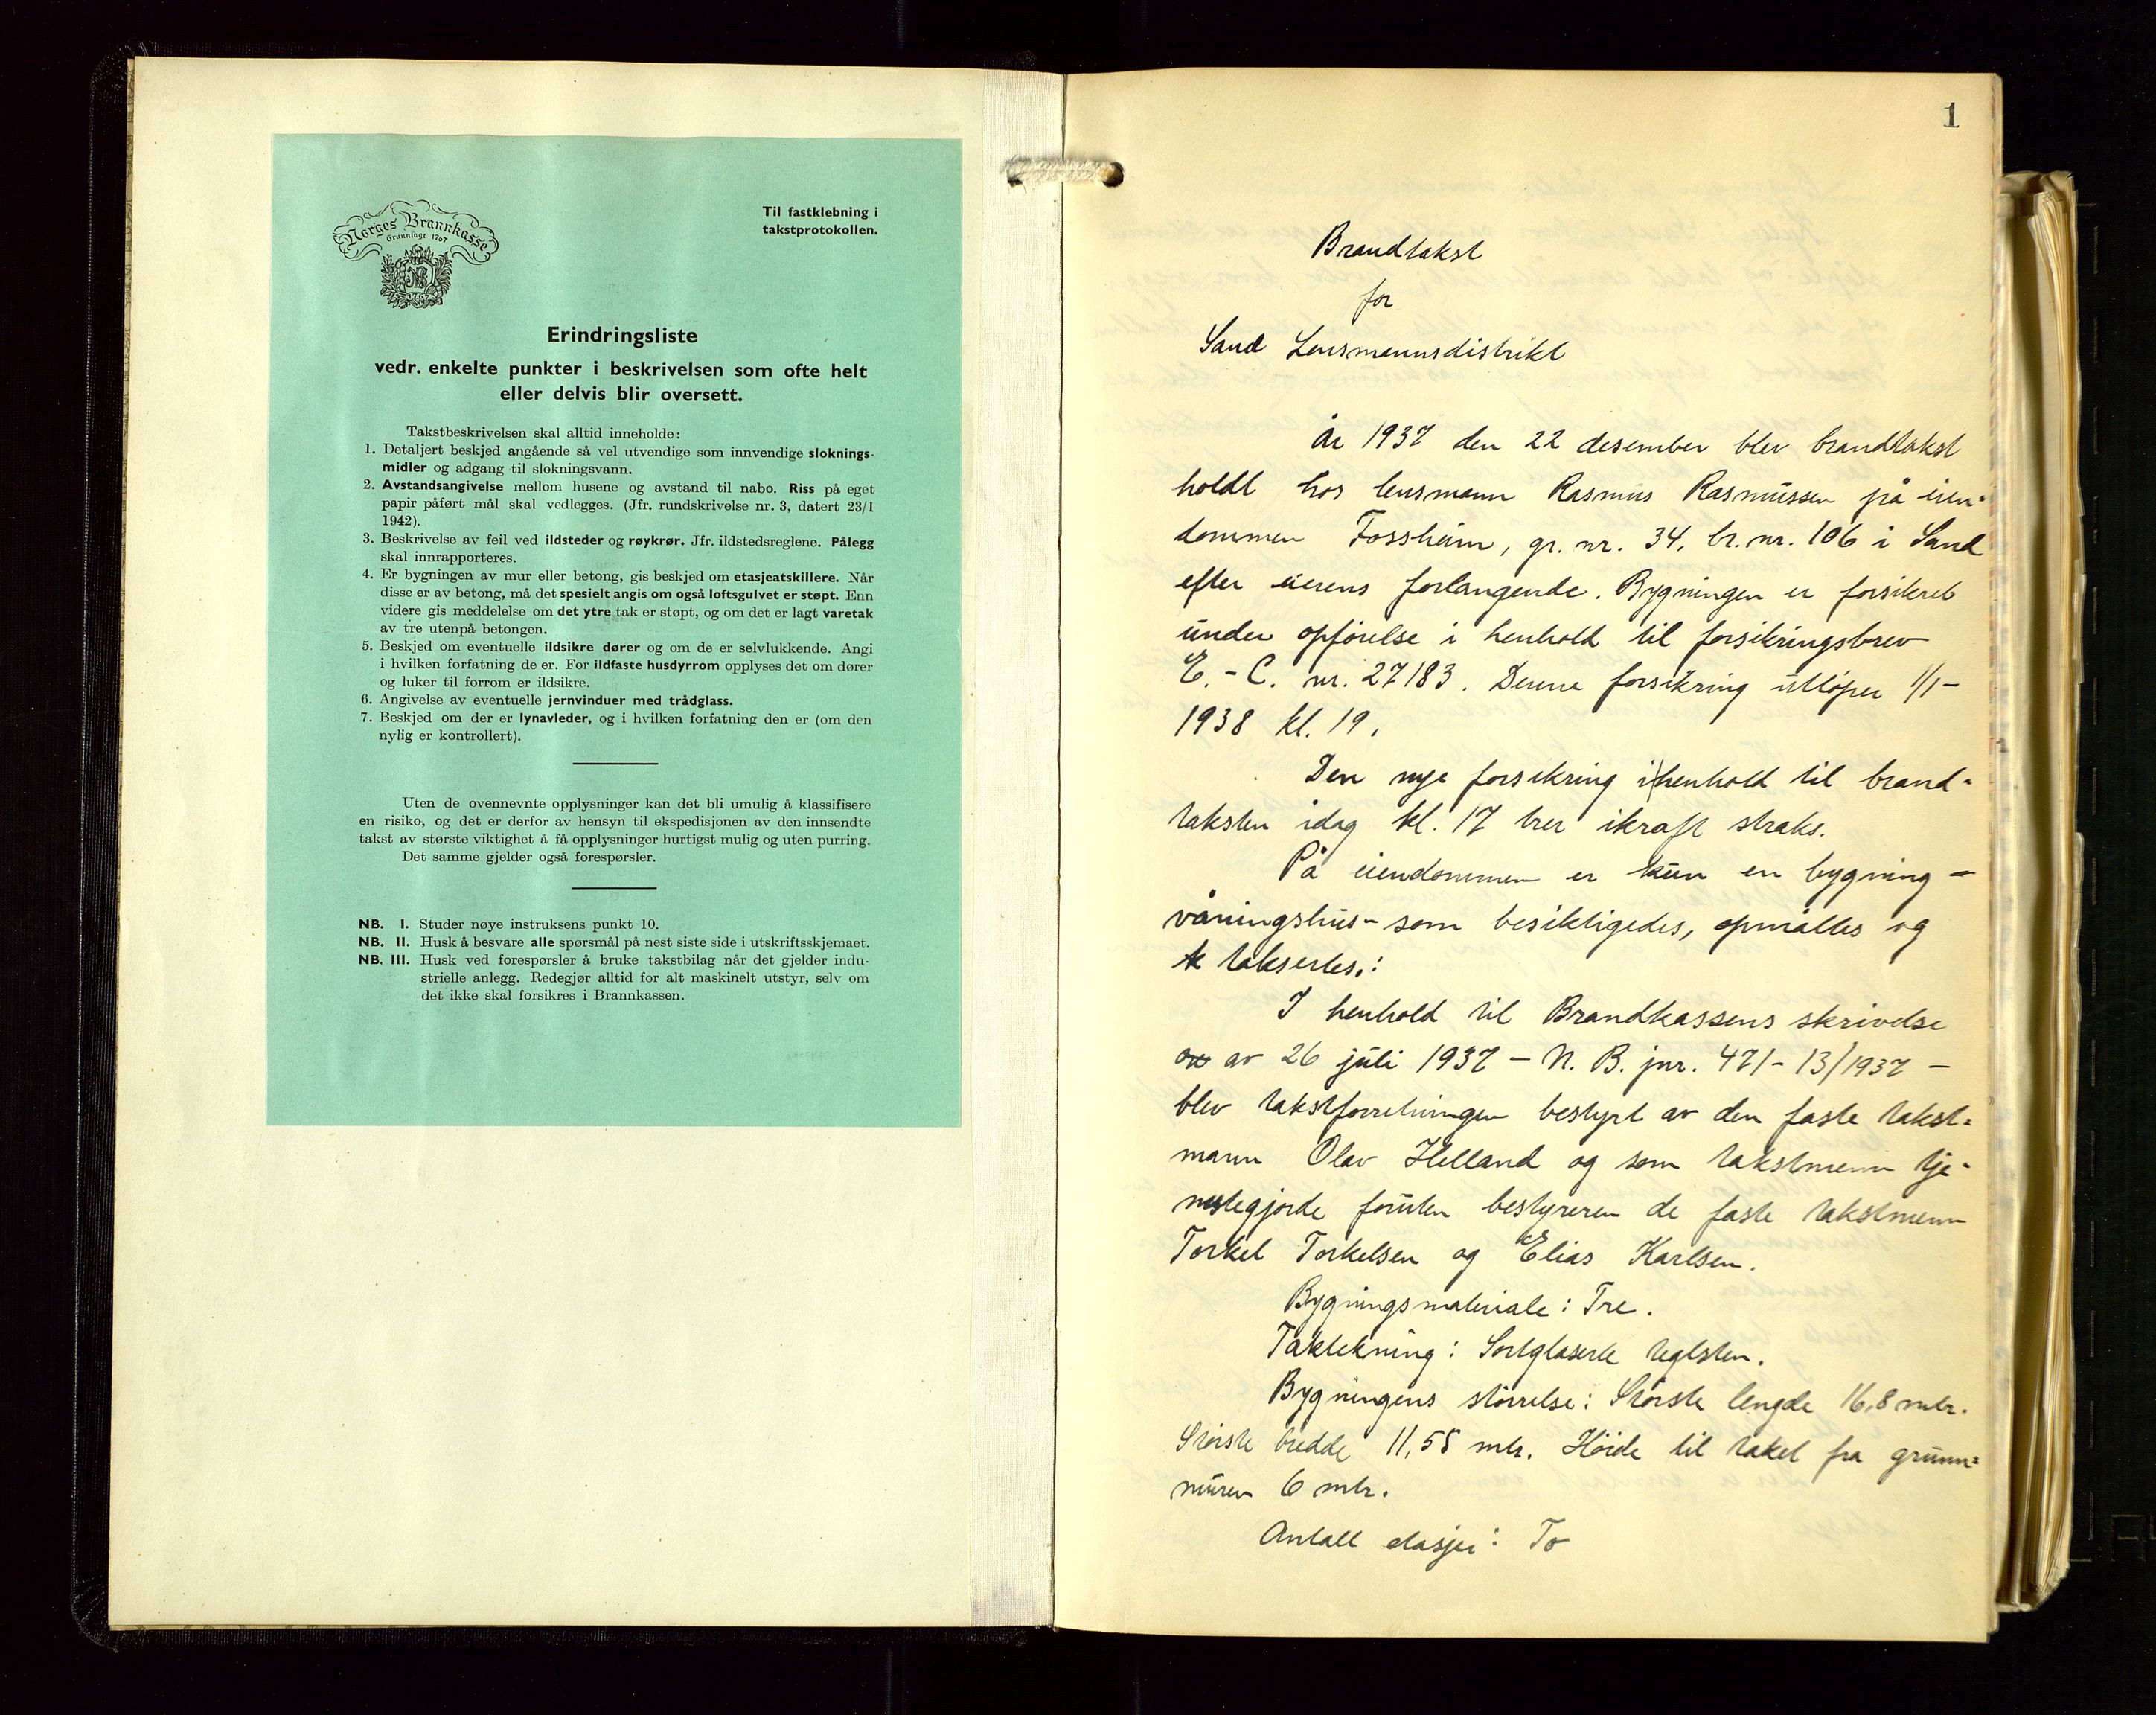 Norges Brannkasse
Grunnlagt 1767
Til fastklebning i
takstprotokollen.
Erindringsliste
vedr. enkelte punkter i beskrivelsen som ofte helt
eller delvis blir oversett.
Takstbeskrivelsen skal alltid inneholde:
1. Detaljert beskjed angående så vel utvendige som innvendige sloknings-
midler og adgang til slokningsvann.
2. Avstandsangivelse mellom husene og avstand til nabo. Riss på eget
papir påført mål skal vedlegges. (Jfr. rundskrivelse nr. 3, datert 23/1
1942).
3. Beskrivelse av feil ved ildsteder og røykrør. Jfr. ildstedsreglene. Pålegg
skal innrapporteres.
4. Er bygningen av mur eller betong, gis beskjed om etasjeatskillere. Når
disse er av betong, må det spesielt angis om også loftsgulvet er støpt. Enn
videre gis meddelelse om det ytre tak er støpt, og om det er lagt varetak
av tre utenpå betongen.
5. Beskjed om eventuelle ildsikre dører og om de er selvlukkende. Angi
i hvilken forfatning de er. For ildfaste husdyrrom opplyses det om dører
og luker til forrom er ildsikre.
6. Angivelse av eventuelle jernvinduer med trådglass.
7. Beskjed om der er lynavleder, og i hvilken forfatning den er (om den
nylig er kontrollert).
Uten de ovennevnte opplysninger kan det bli umulig å klassifisere
en risiko, og det er derfor av hensyn til ekspedisjonen av den innsendte
takst av største viktighet å få opplysninger hurtigst mulig og uten purring.
Det samme gjelder også forespørsler.
NB. I. Studer nøye instruksens punkt 10.
NB. II. Husk å besvare alle spørsmål på nest siste side i utskriftsskjemaet.
NB. III. Husk ved forespørsler å bruke takstbilag når det gjelder indu-
strielle anlegg. Redegjør alltid for alt maskinelt utstyr, selv om
det ikke skal forsikres i Brannkassen.
1
Brandtakst
for
Sand Lensmannsdistrikt
År 1937 den 22 desember blev brandtakst
holdt hos lensmann Rasmus Rasmussen på eien-
dommen Fossheim, gr. nr. 34, br. nr. 106 i Sand
efter eierens forlangende. Bygningen er forsikret
under opførelse i henhold til forsikringsbrev
E. - C. nr. 27183. Denne forsikring utløper 1/1-
1938 kl. 19.
Den nye forsikring i henhold til brand-
taksten idag kl. 17 trer ikraft straks.
På eiendommen er kun en bygning -
våningshus - som besiktigedes, opmåltes og
taksertes.:
I henhold til Brandkassens skrivelse
av 26 juli 1937 - N. B. jnr. 471 - 13/1937 -
blev takstforretningen bestyrt av den faste takst-
mann Olav Helland og som takstmenn tje-
nestegjorde foruten bestyreren de faste takstmenn
Torkel Torkelsen og Elias Karlsen.
Bygningsmateriale: Tre.
Taktekning: Sortglaserte teglsten.
Bygningens størrelse: Største lengde 16,8 mtr.
Største bredde 11,58 mtr. Høide til taket fra grunn-
muren 6 mtr.
Antall etasjer: To